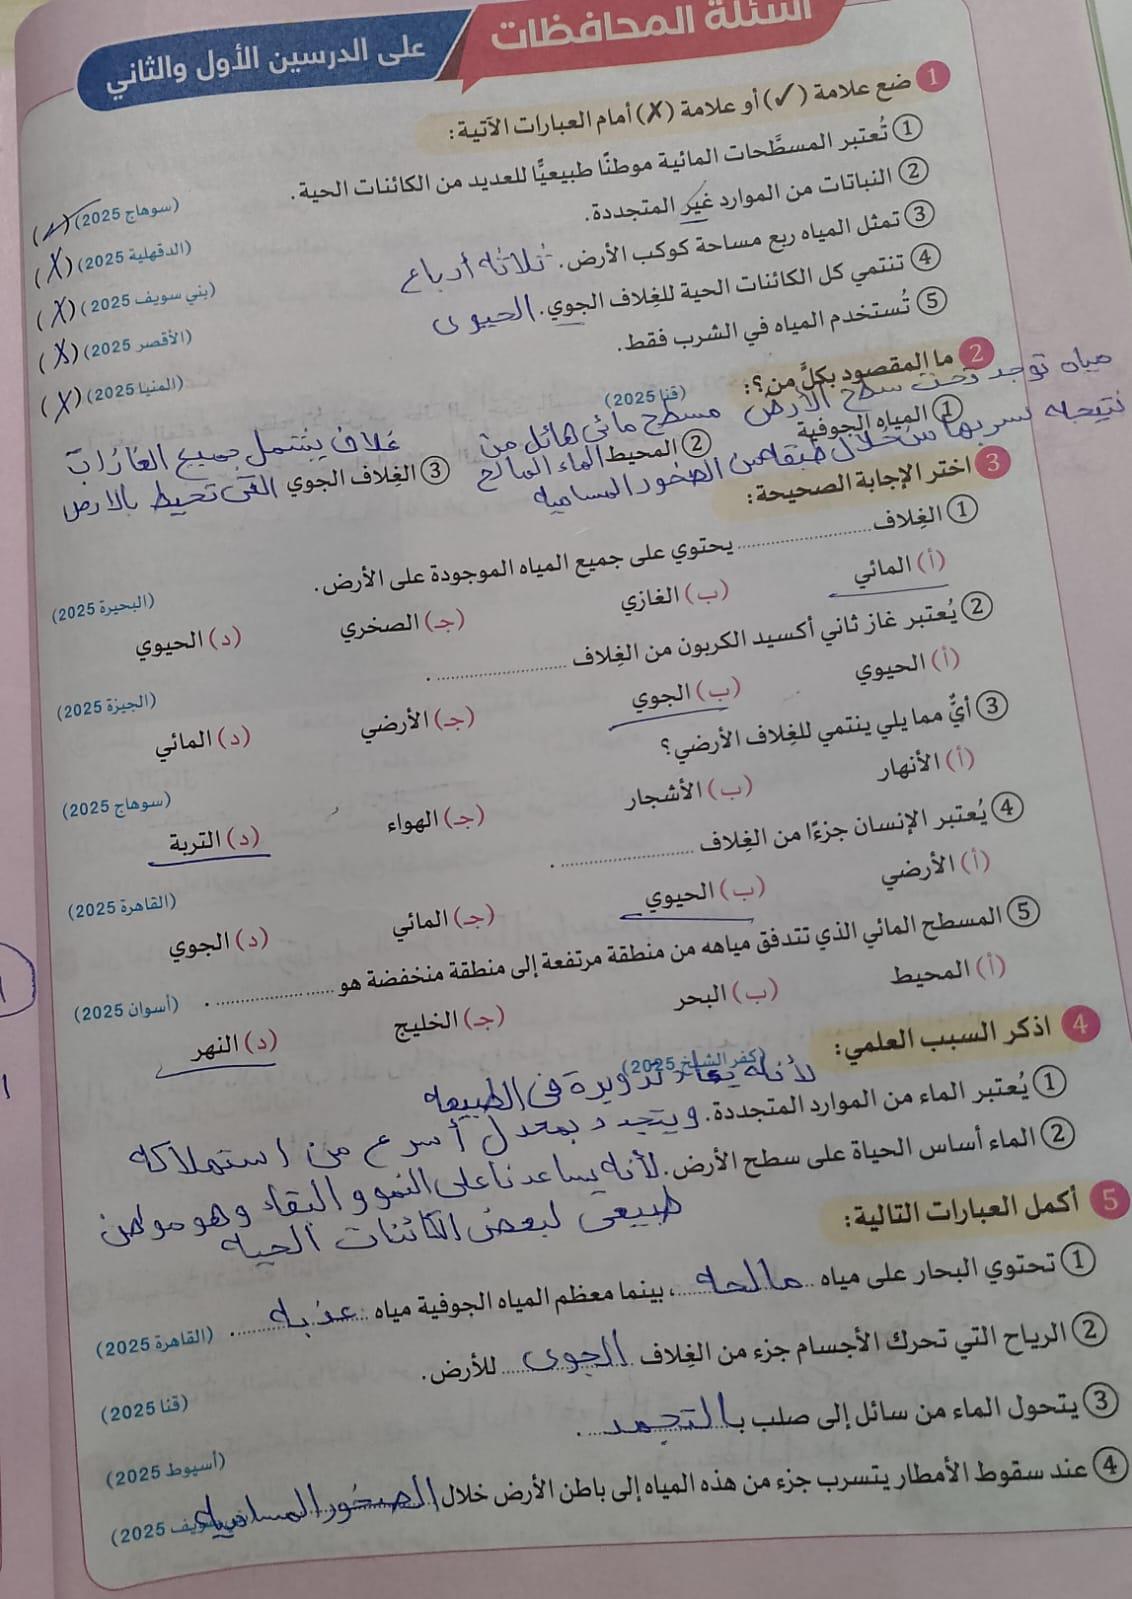 أسئلة المحافظات
على الدرسين الأول والثاني
1 ضع علامة (✓) أو علامة (✗) أمام العبارات الآتية:
① تُعتبر المسطَّحات المائية موطنًا طبيعيًّا للعديد من الكائنات الحية. (سوهاج 2025) (✓)
② النباتات من الموارد غير المتجددة. (الدقهلية 2025) (X)
③ تمثل المياه ربع مساحة كوكب الأرض. ثلاثه أرباع (بني سويف 2025) (X)
④ تنتمي كل الكائنات الحية للغِلاف الجوي. الحيوى (الأقصر 2025) (X)
⑤ تُستخدم المياه في الشرب فقط. (المنيا 2025) (X)
2 ما المقصود بكلٍّ من؟: (قنا 2025)
① المياه الجوفية مياه توجد تحت سطح الأرض نتيجه تسربها من خلال طبقه من الصخور المساميه
② المحيط مسطح مائي هائل من الماء المالح
③ الغِلاف الجوي غلاف يشتمل جميع الغازات التى تحيط بالارض
3 اختر الإجابة الصحيحة:
① الغِلاف .................. يحتوي على جميع المياه الموجودة على الأرض. (البحيرة 2025)
(أ) المائي (ب) الغازي (جـ) الصخري (د) الحيوي
② يُعتبر غاز ثاني أكسيد الكربون من الغِلاف .................. . (الجيزة 2025)
(أ) الحيوي (ب) الجوي (جـ) الأرضي (د) المائي
③ أيٌّ مما يلي ينتمي للغِلاف الأرضي؟ (سوهاج 2025)
(أ) الأنهار (ب) الأشجار (جـ) الهواء (د) التربة
④ يُعتبر الإنسان جزءًا من الغِلاف .................. . (القاهرة 2025)
(أ) الأرضي (ب) الحيوي (جـ) المائي (د) الجوي
⑤ المسطح المائي الذي تتدفق مياهه من منطقة مرتفعة إلى منطقة منخفضة هو .................. . (أسوان 2025)
(أ) المحيط (ب) البحر (جـ) الخليج (د) النهر
4 اذكر السبب العلمي: (كفر الشيخ 2025)
① يُعتبر الماء من الموارد المتجددة. لأنه يعاد تدويرة فى الطبيعه ويتجدد بمعدل أسرع من استهلاكه
② الماء أساس الحياة على سطح الأرض. لأنه يساعدنا على النمو والبقاء وهو موطن
طبيعى لبعض الكائنات الحيه
5 أكمل العبارات التالية:
① تحتوي البحار على مياه مالحه، بينما معظم المياه الجوفية مياه عذبه. (القاهرة 2025)
② الرياح التي تحرك الأجسام جزء من الغِلاف الجوى للأرض. (قنا 2025)
③ يتحول الماء من سائل إلى صلب بالتجمد. (أسيوط 2025)
④ عند سقوط الأمطار يتسرب جزء من هذه المياه إلى باطن الأرض خلال الصخور المساميه (بني سويف 2025)